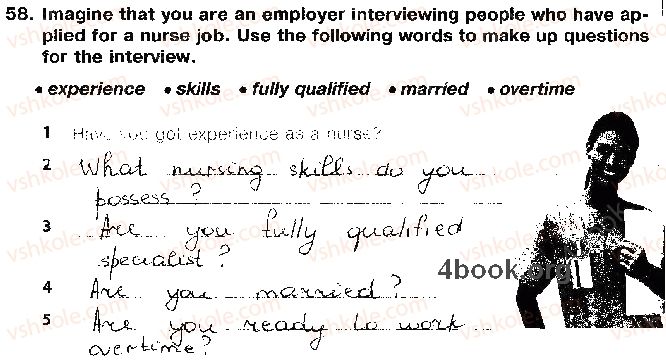 58. Imagine that you are an employer interviewing people who have ap-
plied for a nurse job. Use the following words to make up questions
for the interview.
• experience • skills • fully qualified • married • overtime
1 Have you got experience as a nurse?
2 What nursing skills do you
possess ?
3 Are you fully qualified
specialist ?
4book.org
4 Are you married?
5 Are you ready to work
overtime?